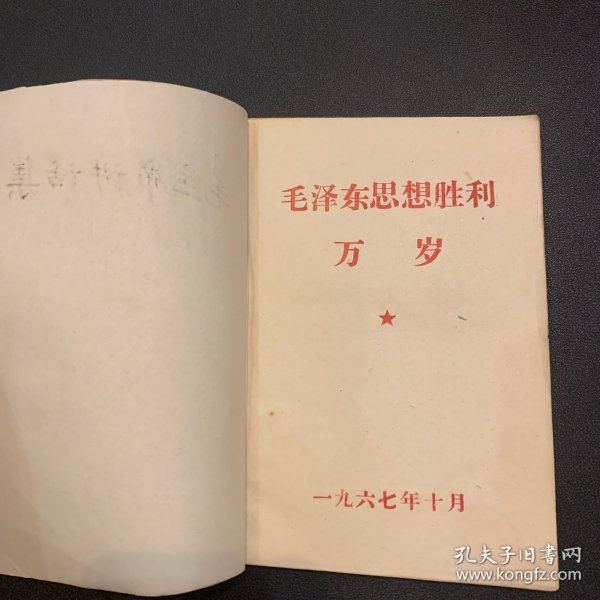 毛泽东思想胜利
万岁
一九六七年十月
孔夫子旧书网
www.kongfz.com